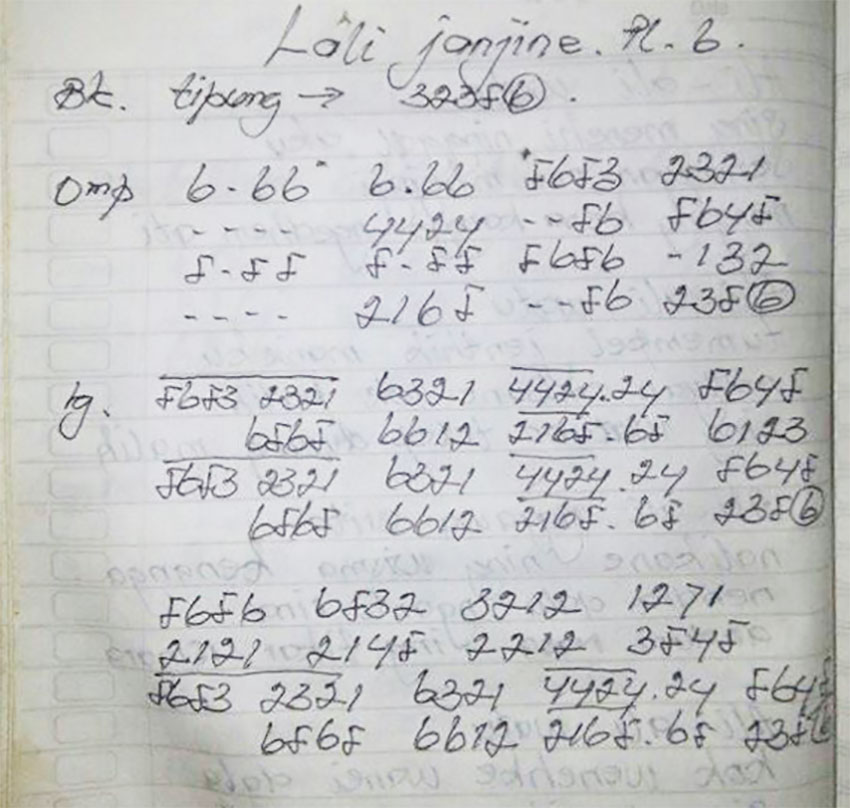 Lali janjine. Pl. 6.
Bk. tipung → 32356.
Omp 6-66 6.66 5653 2321
---- 4424 --56 5645
5-55 5-55 5656 -132
---- 2165 --56 2356
lg. 5653 2321 6321 4424.24 5645
6565 6612 2165.65 6123
5653 2321 6321 4424.24 5645
6565 6612 2165.65 2356
5656 6532 3212 1271
2121 2145 2212 3545
5653 2321 6321 4424.24 5645
6565 6612 2165.65 2356